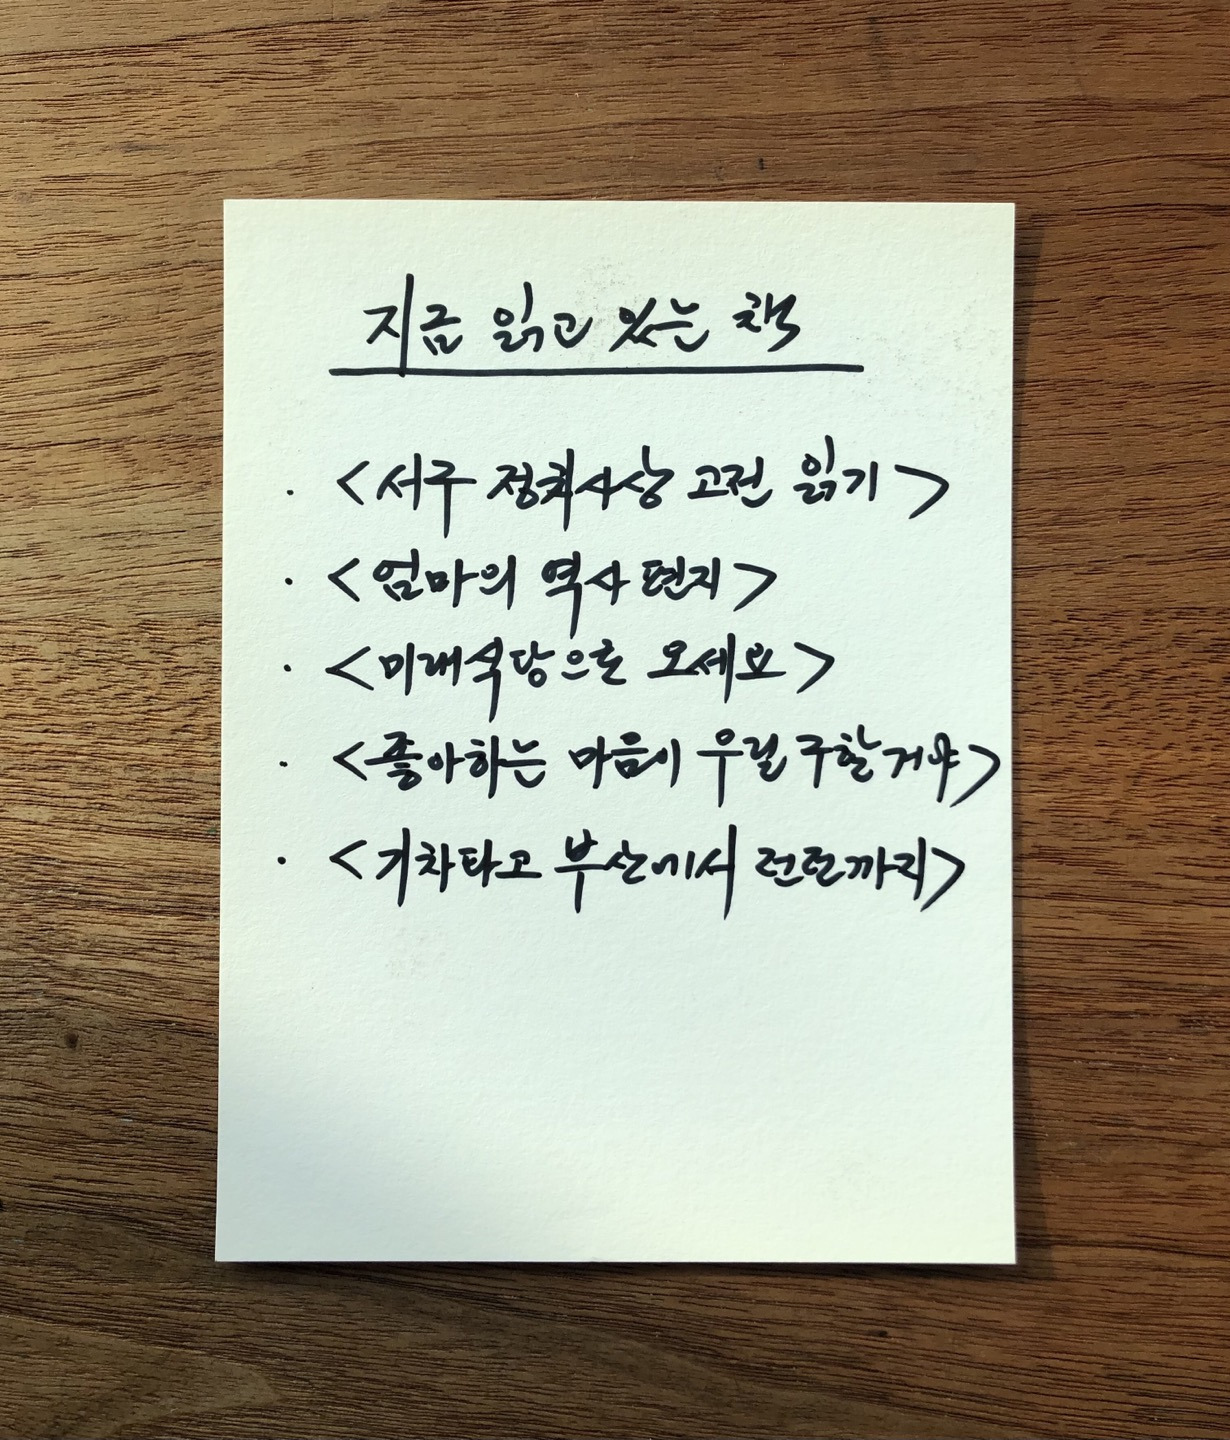 지금 읽고 있는 책
· <서구 정치사상 고전 읽기>
· <엄마의 역사 편지>
· <미래식당으로 오세요>
· <좋아하는 마음이 우릴 구할거야>
· <기차타고 부산에서 런던까지>